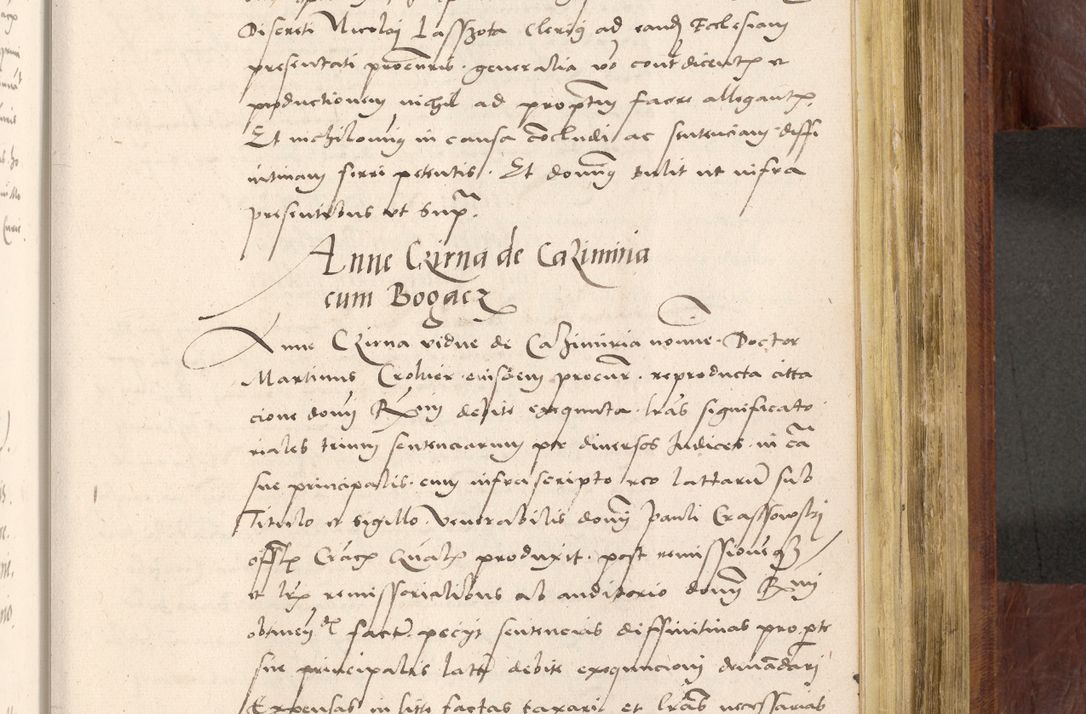 Discreti Nicolaj Lasszota Clerici ad eand Ecclesiam
presentati procuris. generalia vo contdicente et
productionem nichil ad proptm facere allegante.
Et nichilominus in causa concludi ac sentenciam diffi
nitivam ferri petentis. Et dominus tulit ut infra
presentibus ut supra.
Anne Czirna de Cazimiria
cum Bogacz
Anne Czirna vidue de Cazimiria nomine. Doctor
Martinus Crokier eiusdem procur. reproducta citta
cione domini Rmi debite exequuta. lras significato
riales trium sentenciarum per diversos Judices. in ca
sue principalis. cum infrascripto reo lattarum sub
Titulo et sigillo. Venerabilis domini Pauli Crassowski
offlis Cracovien produxit. post remissionem
et lrar remissorialibus ab auditorio domini Rmi
obtinen factum. pecijt sentencias diffinitivas pro parte
sue principalis latas debite exequucioni demandari
Expensas in lite factas taxari et lras necessarias